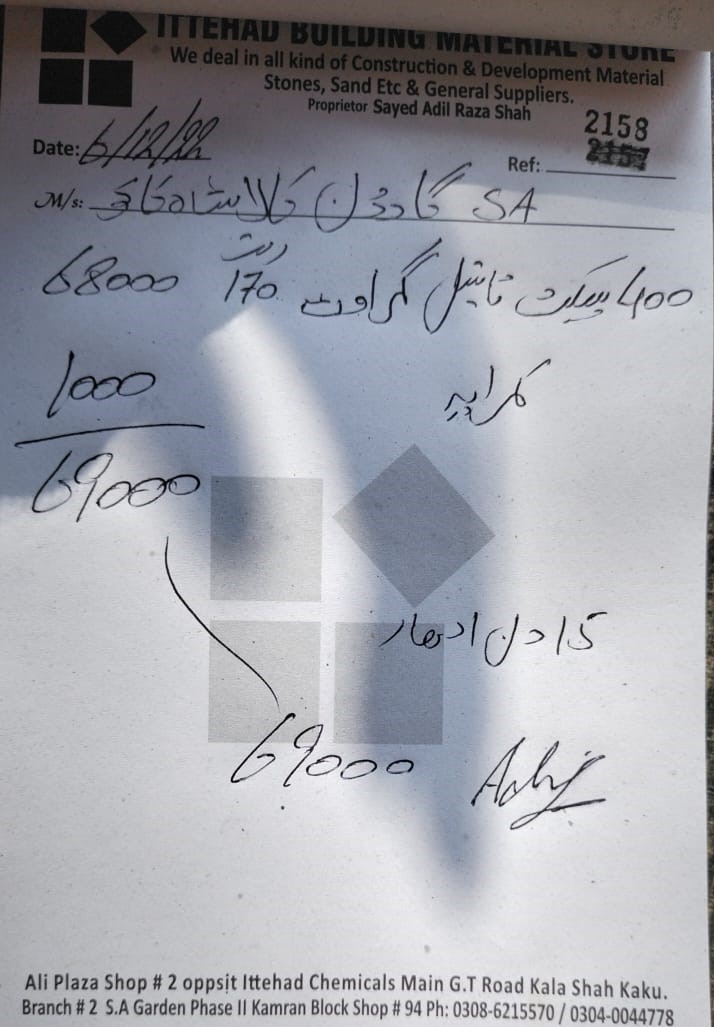 ITTEHAD BUILDING MATERIAL STORE
We deal in all kind of Construction & Development Material
Stones, Sand Etc & General Suppliers.
Proprietor Sayed Adil Raza Shah
2158
Date: 6/12/22
Ref: 2157
M/s: SA گارڈن کالا شاہ کاکو
400 پیکٹ ٹائیل گراوٹ 170 ریٹ 68000
کرایہ 1000
69000
15 دن ادھار
69000
Ali Plaza Shop # 2 oppsit Ittehad Chemicals Main G.T Road Kala Shah Kaku.
Branch # 2 S.A Garden Phase II Kamran Block Shop # 94 Ph: 0308-6215570 / 0304-0044778